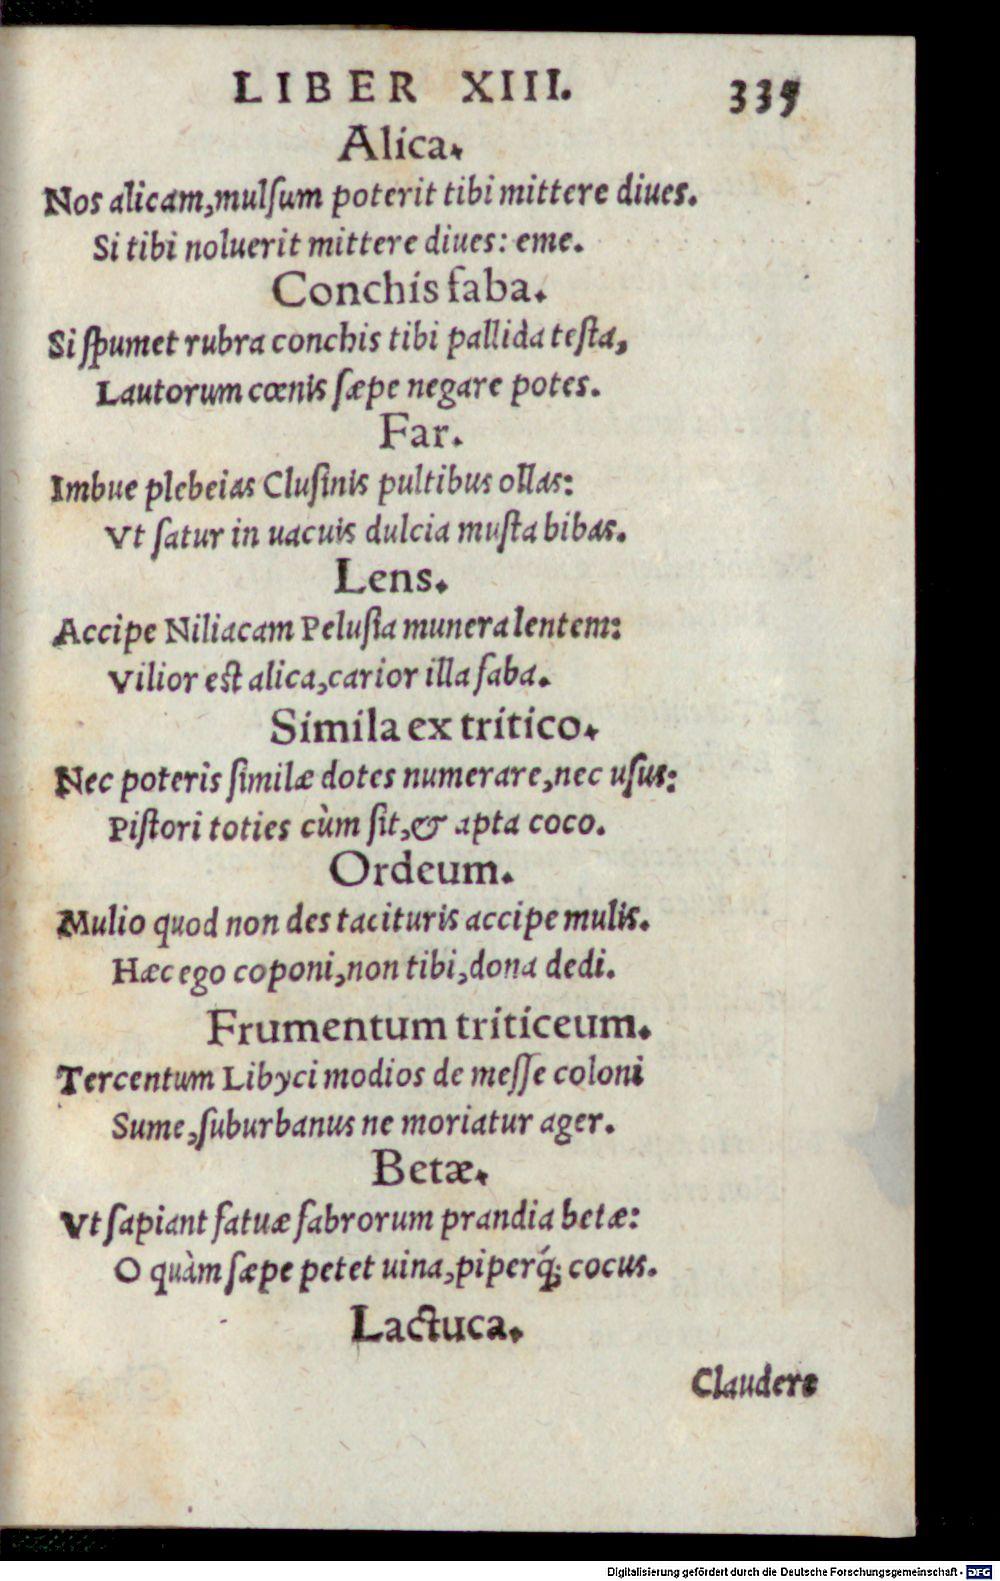 LIBER XIII. 335
Alica.
Nos alicam, mulſum poterit tibi mittere diues.
Si tibi noluerit mittere diues: eme.
Conchis faba.
Si ſpumet rubra conchis tibi pallida teſta,
Lautorum cœnis ſæpe negare potes.
Far.
Imbue plebeias Cluſinis pultibus ollas:
Vt ſatur in uacuis dulcia muſta bibas.
Lens.
Accipe Niliacam Peluſia munera lentem:
Vilior eſt alica, carior illa faba.
Simila ex tritico.
Nec poteris ſimilæ dotes numerare, nec uſus:
Piſtori toties cùm ſit, & apta coco.
Ordeum.
Mulio quod non des tacituris accipe mulis.
Hæc ego coponi, non tibi, dona dedi.
Frumentum triticeum.
Tercentum Libyci modios de meſſe coloni
Sume, ſuburbanus ne moriatur ager.
Betæ.
Vt ſapiant fatuæ fabrorum prandia betæ:
O quàm ſæpe petet uina, piperq́; cocus.
Lactuca.
Claudere
Digitalisierung gefördert durch die Deutsche Forschungsgemeinschaft - DFG